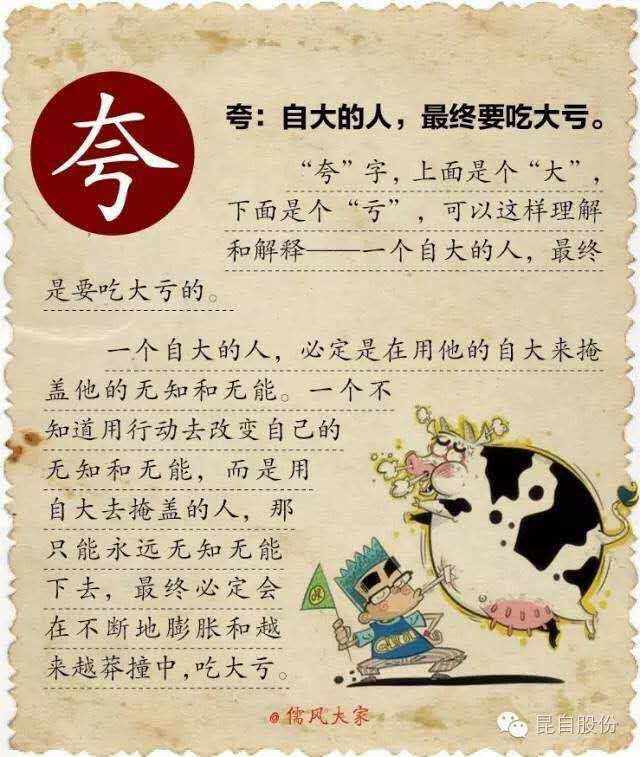 夸
夸：自大的人，最终要吃大亏。
“夸”字，上面是个“大”，
下面是个“亏”，可以这样理解
和解释——一个自大的人，最终
是要吃大亏的。
一个自大的人，必定是在用他的自大来掩
盖他的无知和无能。一个不
知道用行动去改变自己的
无知和无能，而是用
自大去掩盖的人，那
只能永远无知无能
下去，最终必定会
在不断地膨胀和越
来越莽撞中，吃大亏。
@儒风大家
昆自股份